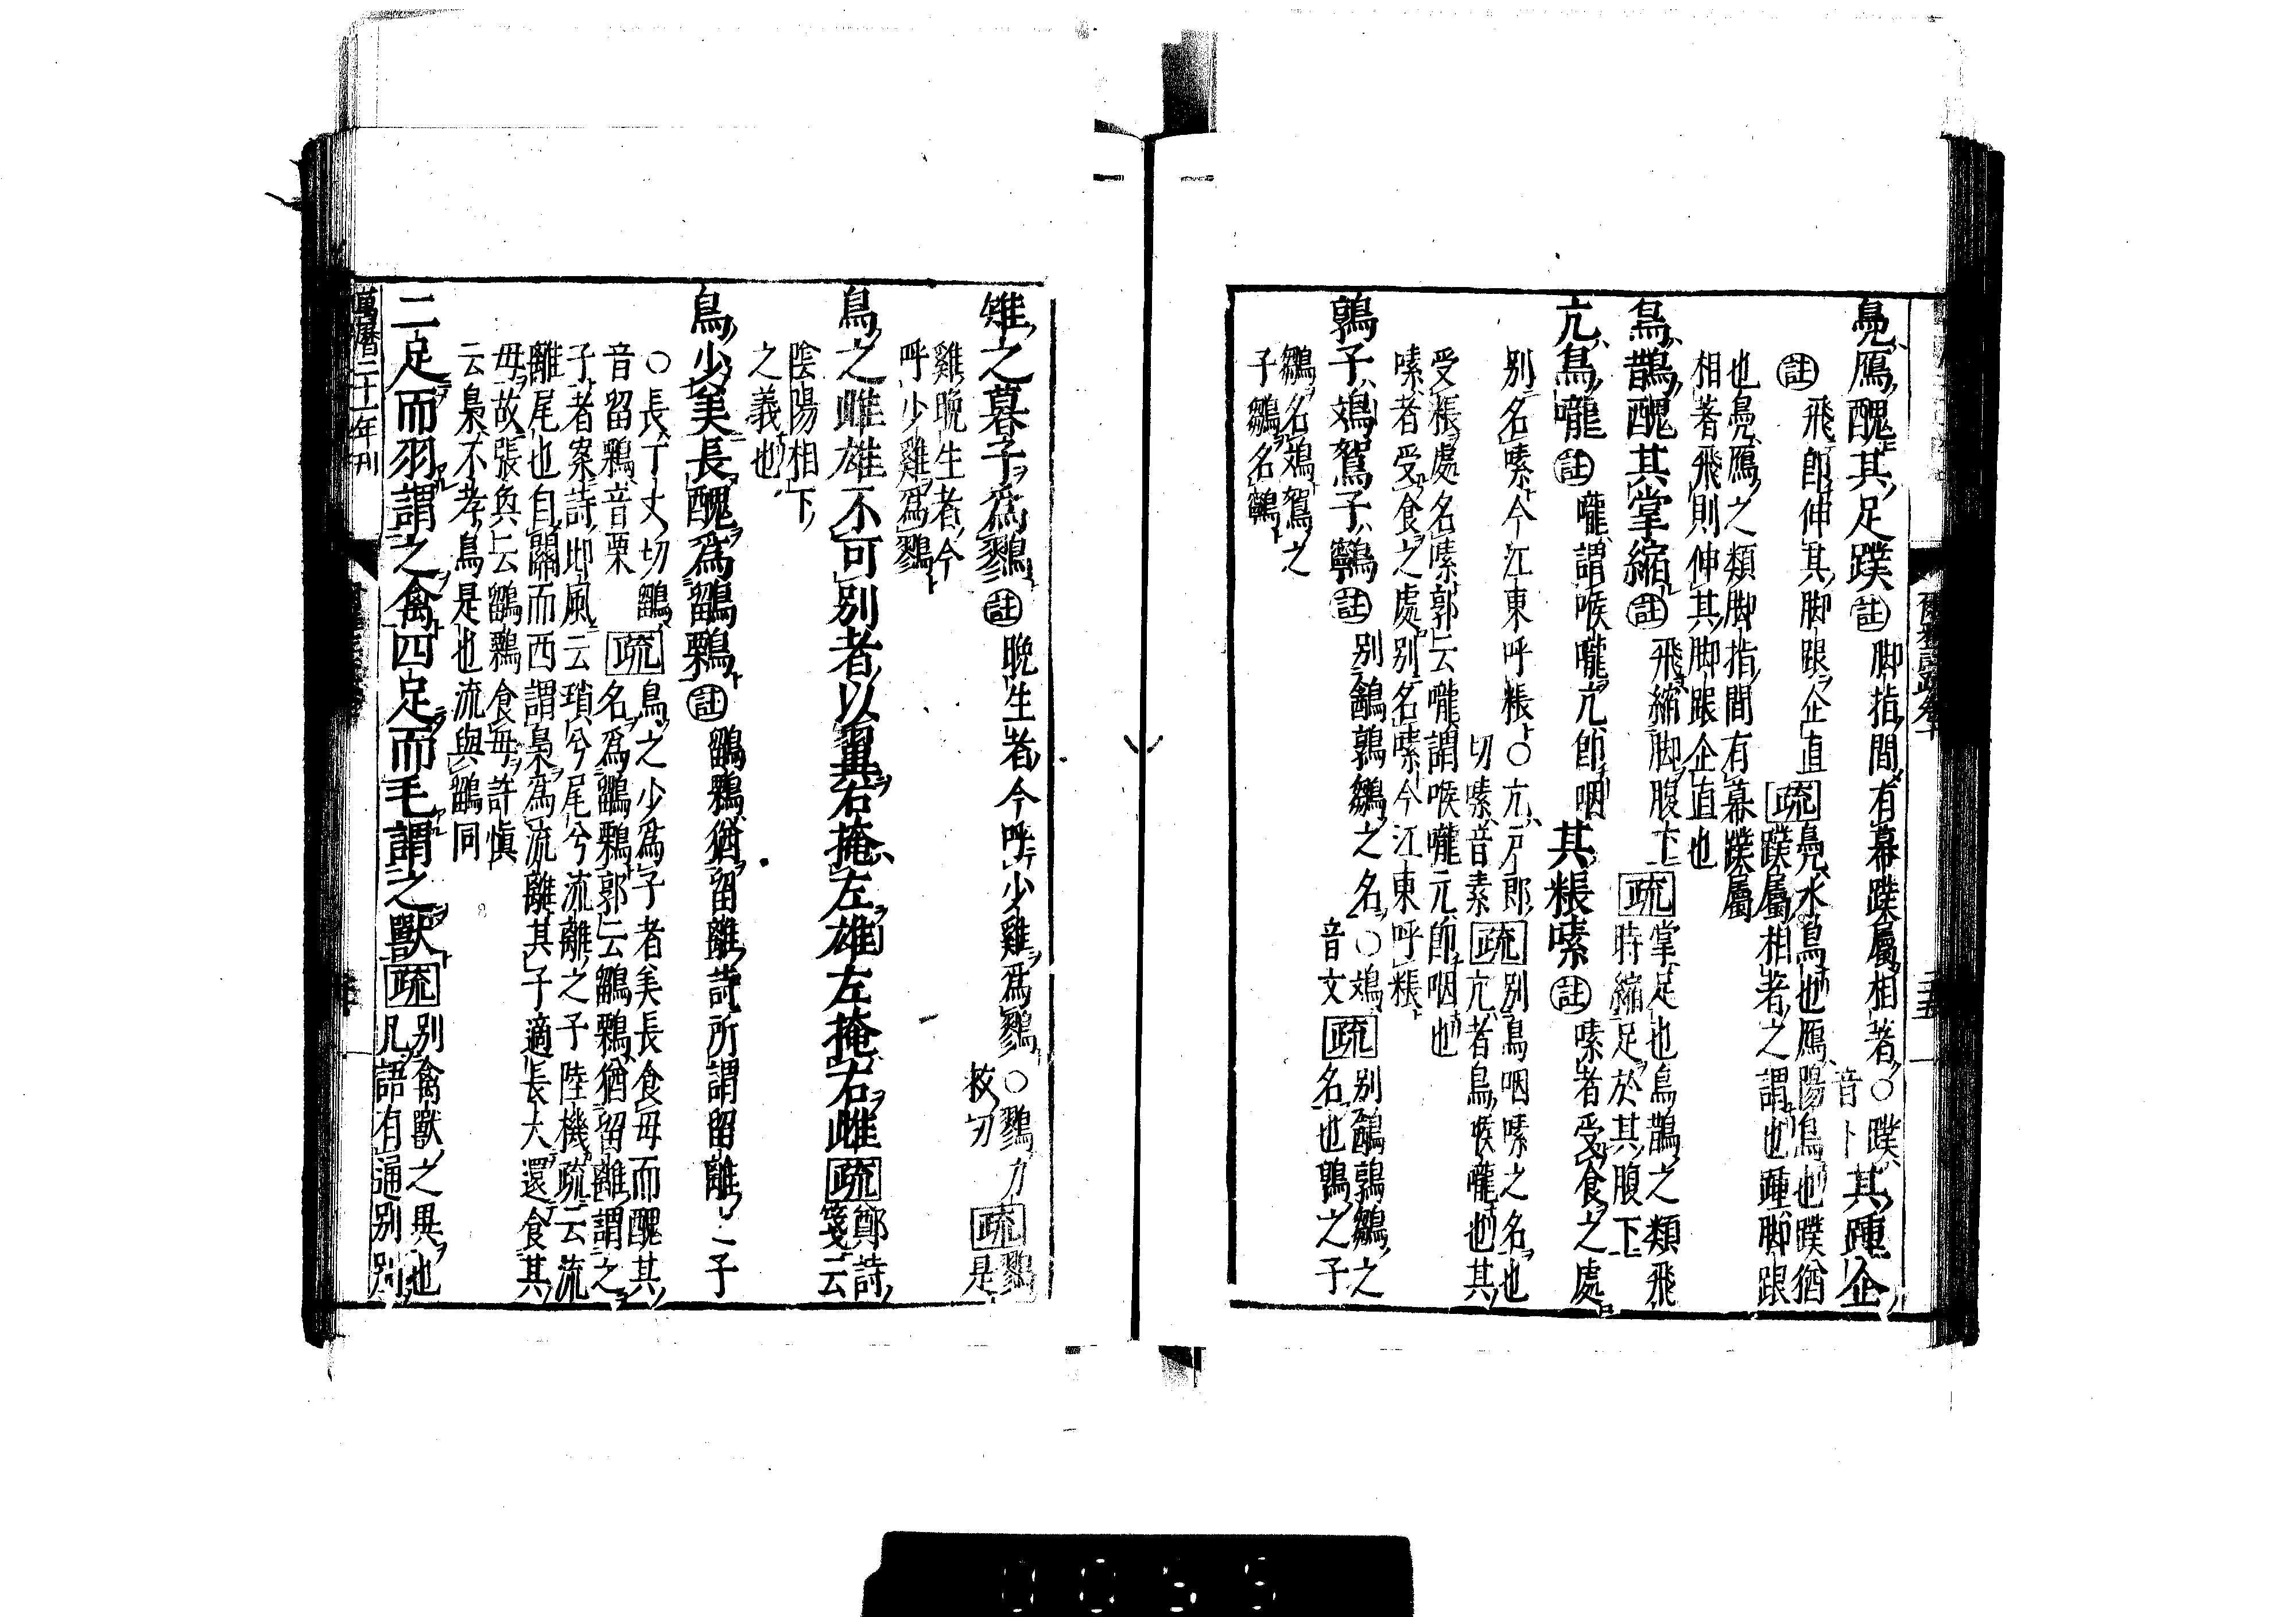 鳧鴈醜其足蹼㊟脚指間有幕蹼屬相著○蹼音卜其踵企
㊟飛即伸其脚跟企直疏鳧水鳥也鴈陽鳥也蹼猶蹼屬相著之謂也踵脚跟
也鳧鴈之類脚指間有幕蹼屬
相著飛則伸其脚跟企直也
烏鵲醜其掌縮㊟飛縮脚腹下疏掌足也烏鵲之類飛時縮足於其腹下
亢鳥嚨㊟嚨謂喉嚨亢即咽其粻嗉㊟嗉者受食之處
別名嗉今江東呼粻○亢戶郎切嗉音素疏別鳥咽嗉之名也亢者鳥喉嚨也其
受粻處名嗉郭云嚨謂喉嚨亢即咽也
嗉者受食之處別名嗉今江東呼粻
鶉子鳼鴽子鸋㊟別鷭鶉雛之名○鳼音文疏別鷭鶉雛之名也鶉之子
雛名鳼鴽之
子雛名鸋
雉之暮子爲鷚㊟晚生者今呼少雞爲鷚○鷚力救切疏鷚是
雞晚生者今
呼少雞爲鷚
鳥之雌雄不可別者以翼右掩左雄左掩右雌疏鄭詩箋云
陰陽相下
之義也
鳥少美長醜爲鶹鷅㊟鶹鷅猶留離詩所謂留離之子
○長丁丈切鶹音留鷅音栗疏鳥之少爲子者美長食母而醜其名爲鶹鷅郭云鶹鷅猶留離謂之
子者案詩邶風云瑣兮尾兮流離之子陸機疏云流
離尾也自關而西謂梟爲流離其子適長大還食其
母故張奐云鶹鷅食母許慎
云梟不孝鳥是也流與鶹同
二足而羽謂之禽四足而毛謂之獸疏別禽獸之異也凡語有通別別
萬曆二十一年刊